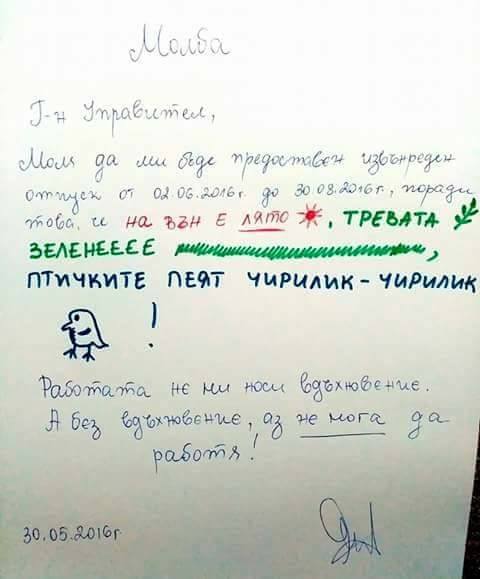 Молба
Г-н Управител,
Моля да ми бъде предоставен извънреден
отпуск от 02.06.2016г. до 30.08.2016г., поради
това, че НА ВЪН Е ЛЯТО, ТРЕВАТА
ЗЕЛЕНЕЕЕЕ,
ПТИЧКИТЕ ПЕЯТ ЧИРИЛИК - ЧИРИЛИК
!
Работата не ми носи вдъхновение.
А без вдъхновение, аз не мога да
работя!
30.05.2016г.